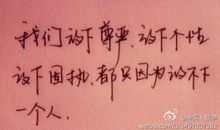 我们放下尊严,放下个性
放下固执,都只因为放不下
一个人.